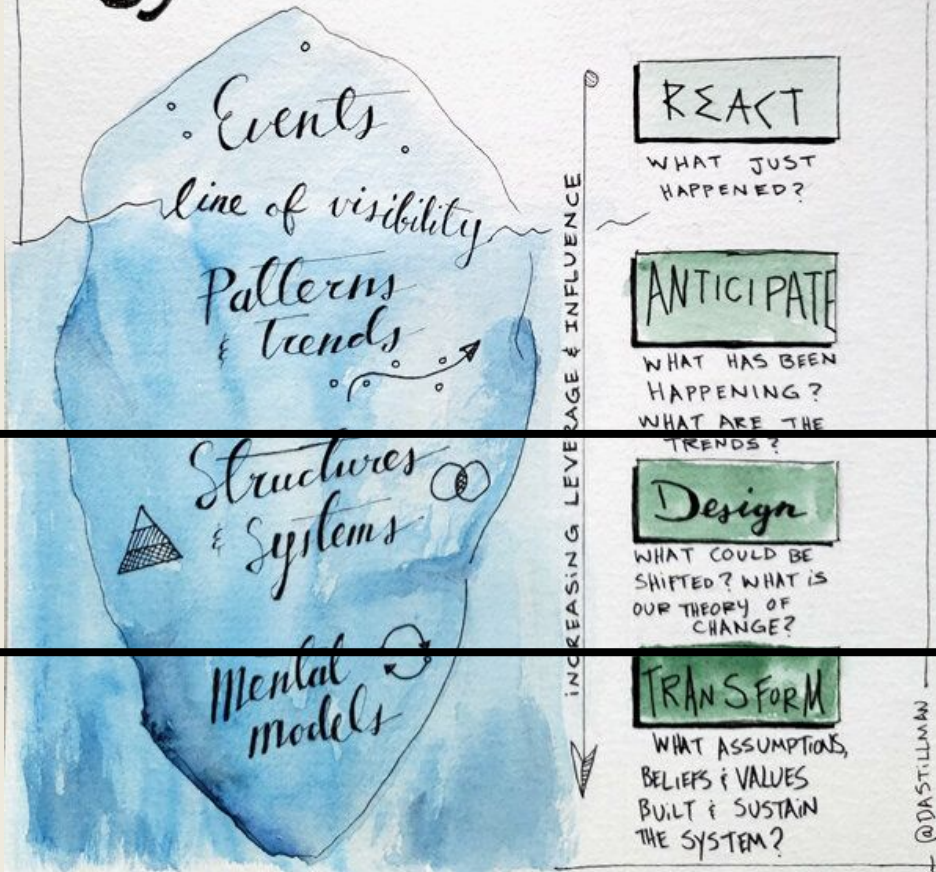 Events
line of visibility
Patterns
& trends
Structures
& Systems
Mental
models
INCREASING LEVERAGE & INFLUENCE
REACT
WHAT JUST
HAPPENED?
ANTICIPATE
WHAT HAS BEEN
HAPPENING?
WHAT ARE THE
TRENDS?
Design
WHAT COULD BE
SHIFTED? WHAT IS
OUR THEORY OF
CHANGE?
TRANSFORM
WHAT ASSUMPTIONS,
BELIEFS & VALUES
BUILT & SUSTAIN
THE SYSTEM?
@DASTILLMAN